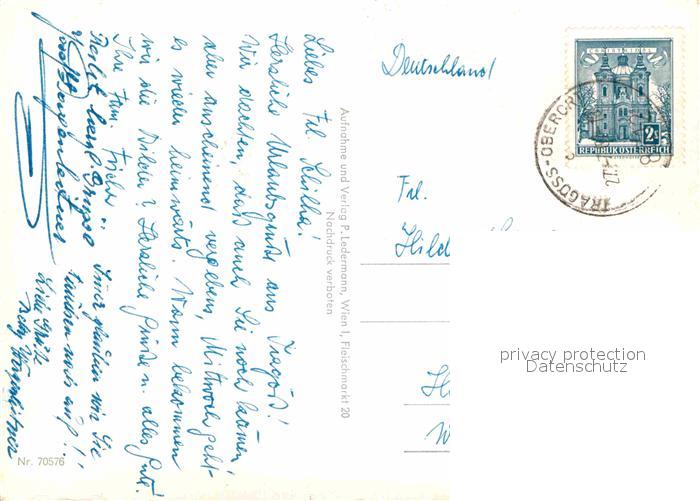 Liebes Frl. Schilha!
Herzliche Urlaubsgrüße aus Tragöß!
Wir dachten, daß auch Sie noch kämen,
aber anscheinend vergebens, Mittwoch geht
es wieder heimwärts. Wann bekommen
wir die Bilder? Herzliche Grüße u. alles Gute!
Ihre Fam. Fischer
Recht liebe Grüße
Immer glauben wir Sie
tauchen noch auf!!
Liebe Grüße
Aufnahme und Verlag P. Ledermann, Wien I, Fleischmarkt 20
Nachdruck verboten
Nr. 70576
Deutschland
CHRISTKINDL
2S
REPUBLIK ÖSTERREICH
TRAGÖSS-OBERORT
Frl.
Hild
privacy protection
Datenschutz